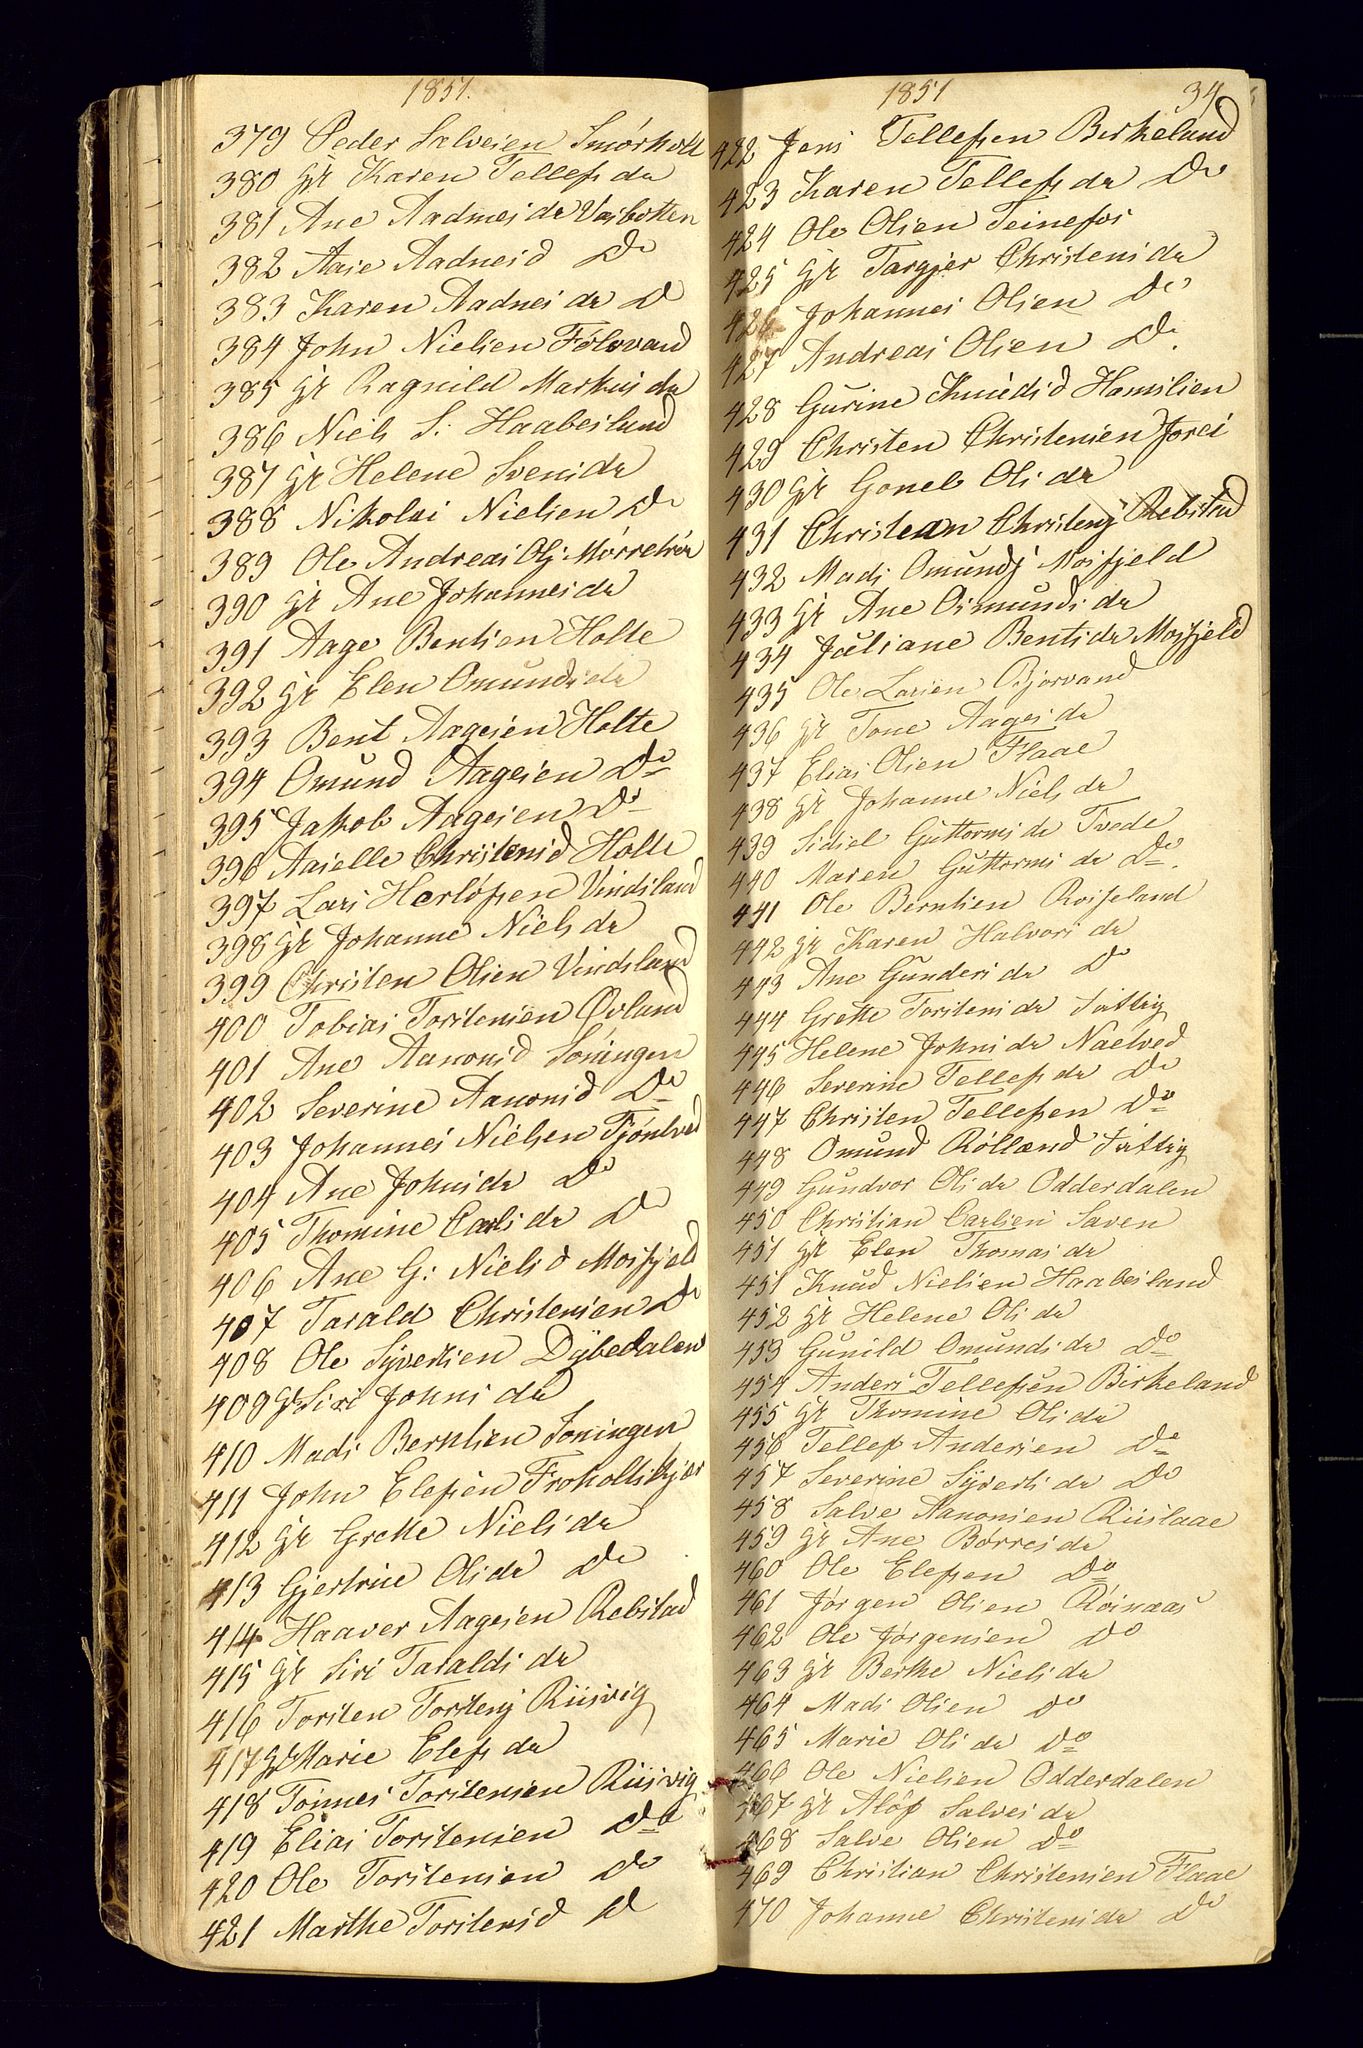 1851.
379 Peder Salvesen Smørholt
380 Gr Karen Tellefs da
381 Ane Aadnes da Vasbotten
382 Aase Aadnesd Do
383 Karen Aadnes da Do
384 John Nielsen Følvvand
385 Gr Ragnild Markus da
386 Niels S: Haabesland
387 Gr Helene Svens da
388 Nikolai Nielsen Do
389 Ole Andreas Olj
390 Gr Ane Johannes da
391 Aage Bentsen Holte
392 Gr Elen Omunds da
393 Bent Aagesen Holte
394 Omund Aagesen Do
395 Jakob Aagesen Do
396 Asielle Christensd Holte
397 Lars Herlofsen Vindsland
398 Gr Johanne Niels da
399 Christen Olsen Vindsland
400 Tobias Torstensen Øvland
401 Ane Aanonsd Soningen
402 Severine Aanonsd Do
403 Johannes Nielsen Fjonlved
404 Ane Johnsda Do
405 Thomine Carls da Do
406 Ane G: Nielsd Mosfjeld
407 Tarald Christensen Do
408 Ole Syvertsen Dybedalen
409 Gr Siri Johns da
410 Mads Berntsen Soningen
411 John Elefsen Froholtskjær
412 Gr Grethe Niels da
413 Gjertrine Ols da Do
414 Haaver Aagesen Rebstad
415 Gr Siri Taralds da
416 Torsten Torstensj Riisvig
417 Gr Marie Elefs da
418 Tonnes Torstensen Riisvig
419 Elias Torstensen Do
420 Ole Torstensen Do
421 Marthe Torstensd Do
1851 34
422 Jens Tellefsen Birkeland
423 Karen Tellefs da Do
424 Ole Olsen Teinefos
425 Gr Targjer Christens da
426 Johannes Olsen Do
427 Andreas Olsen Do.
428 Gurine Knudsd Homslien
429 Christen Christensen Jorei
430 Gr Gonel Ols da
431 Christean Christensj Rebstad
432 Mads Omundsj Mosfjeld
433 Gr Ane Osmunds da
434 Juliane Bentsda Mosfjeld
435 Ole Larsen Bjorvand
436 Gr Tone Aages da
437 Elias Olsen Flaae
438 Gr Johanne Niels da
439 Sidsel Guttorms da Tvede
440 Maren Guttorms da Do.
441 Ole Berntsen Roiseland
442 Gr Karen Halvors da
443 Ane Gunders da Do
444 Grethe Torstens da Fattig
445 Helene Johns da Naelved
446 Severine Tellefs da Do
447 Christen Tellefsen Do
448 Omund Rølland Fattig
449 Gundvor Ols da Odderdalen
450 Christian Carlsen Saven
451 Gr Elen Thomas da
451 Knud Nielsen Haabesland
452 Gr Helene Ols da
453 Gunild Omunds da Do
454 Anders Tellefsen Birkeland
455 Gr Thomine Ols da
456 Tellef Andersen Do
457 Severine Syverts da Do
458 Salve Aanonsen Riislaae
459 Gr Ane Børres da
460 Ole Elefsen Do
461 Jørgen Olsen Røisaas
462 Ole Jørgensen Do
463 Gr Berthe Niels da
464 Mads Olsen Do
465 Marie Ols da Do
466 Ole Nielsen Odderdalen
467 Gr Aløf Salves da
468 Salve Olsen Do
469 Christian Christensen Flaae
470 Johanne Christens da Do